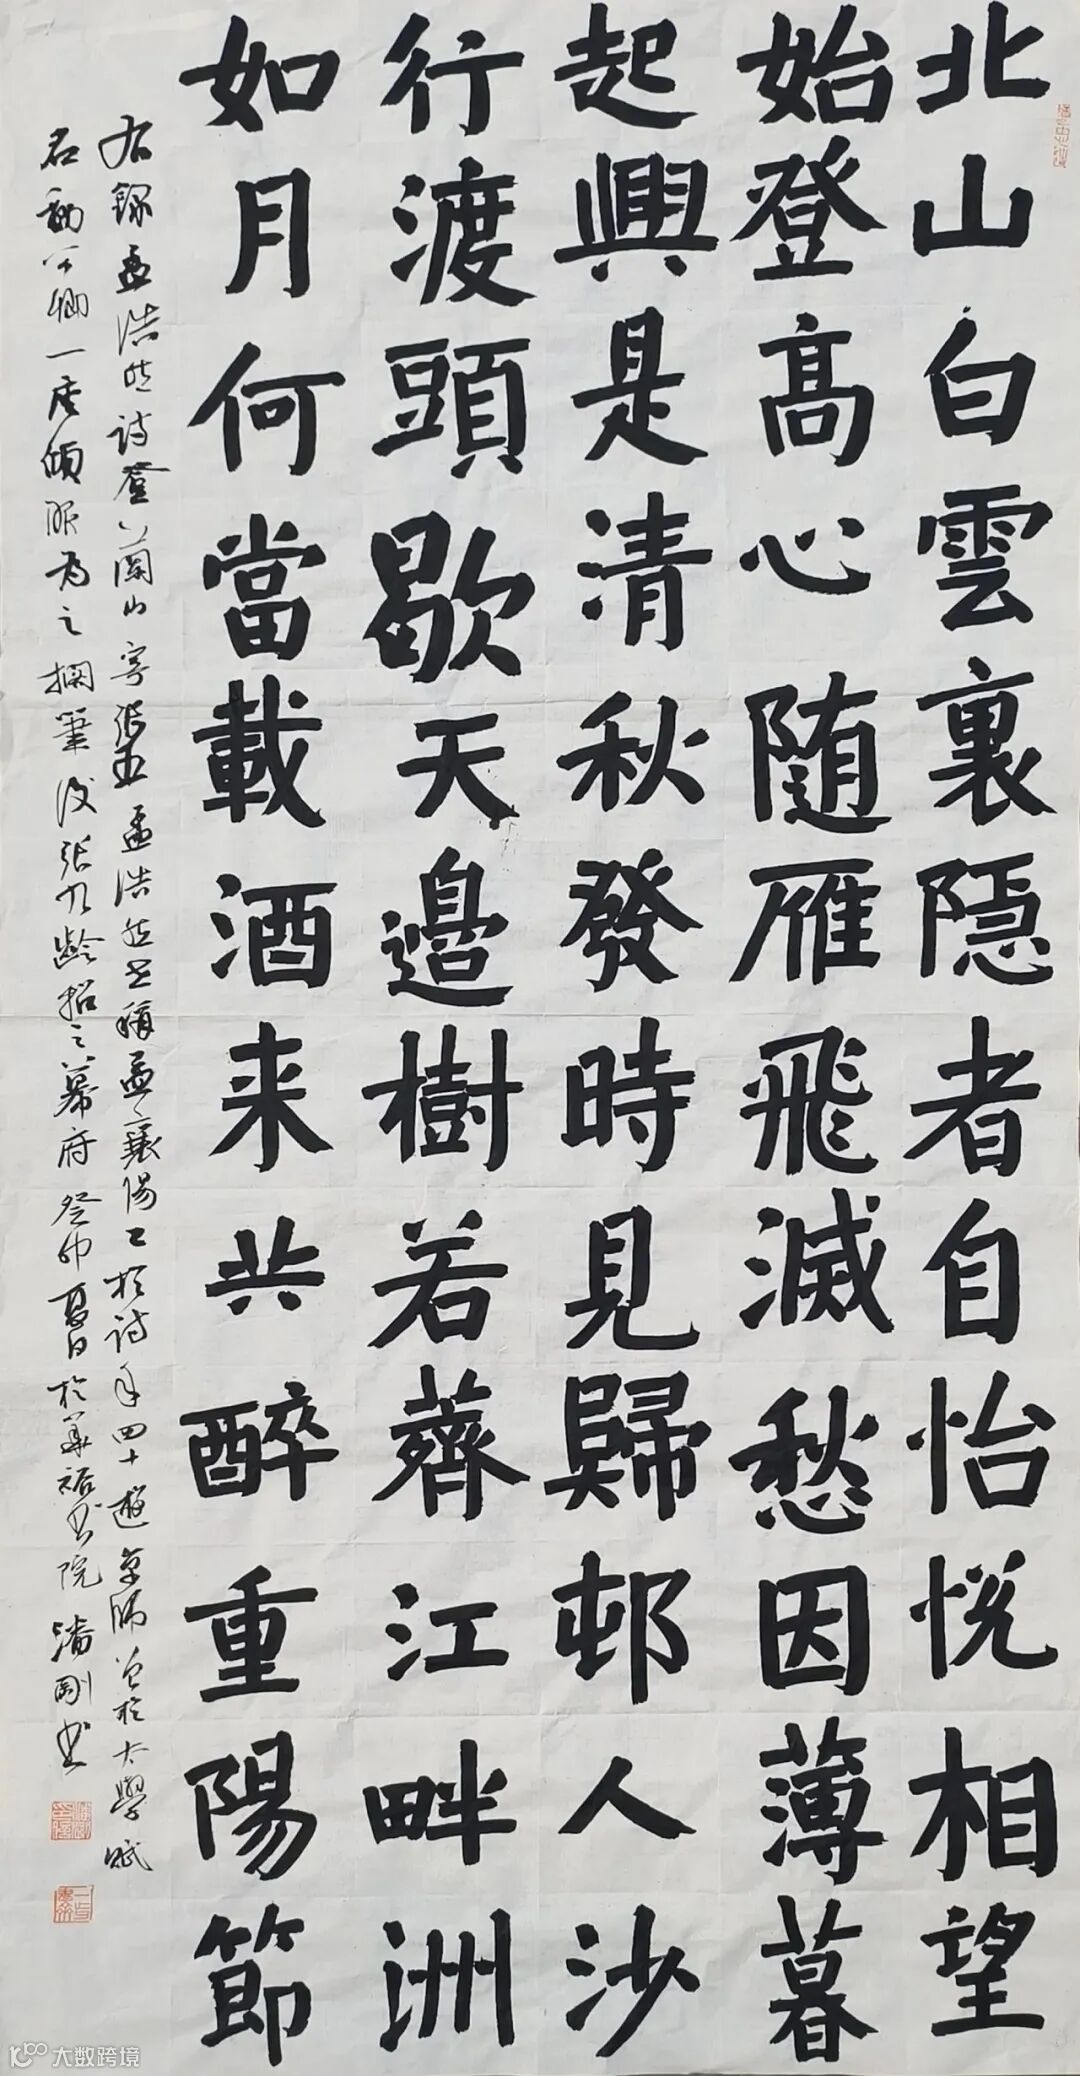 北山白雲裏隱者自怡悦相望
始登高心随雁飛滅愁因薄暮
起興是清秋發時見歸邨人沙
行渡頭歇天邊樹若薺江畔洲
如月何當載酒来共醉重陽節
右録孟浩然詩登蘭山寄張五孟浩然世稱孟襄陽工於詩年四十遊京師曾於太學賦
名動公卿一座傾服為之擱筆後張九齡招之幕府癸卯夏日於美裕书院潘剛书
大数跨境